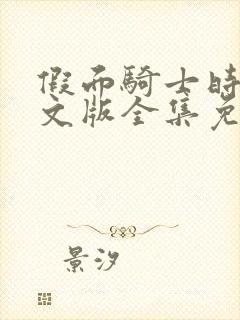 假而騎士時
文版全集免
景汐